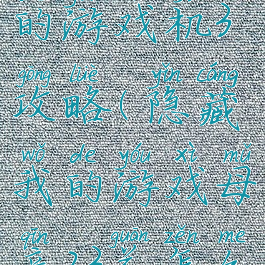 的游戏机3
gōng lüè yǐn cáng
攻略(隐藏
wǒ de yóu xì mǔ
我的游戏母
qīn quán zěn me